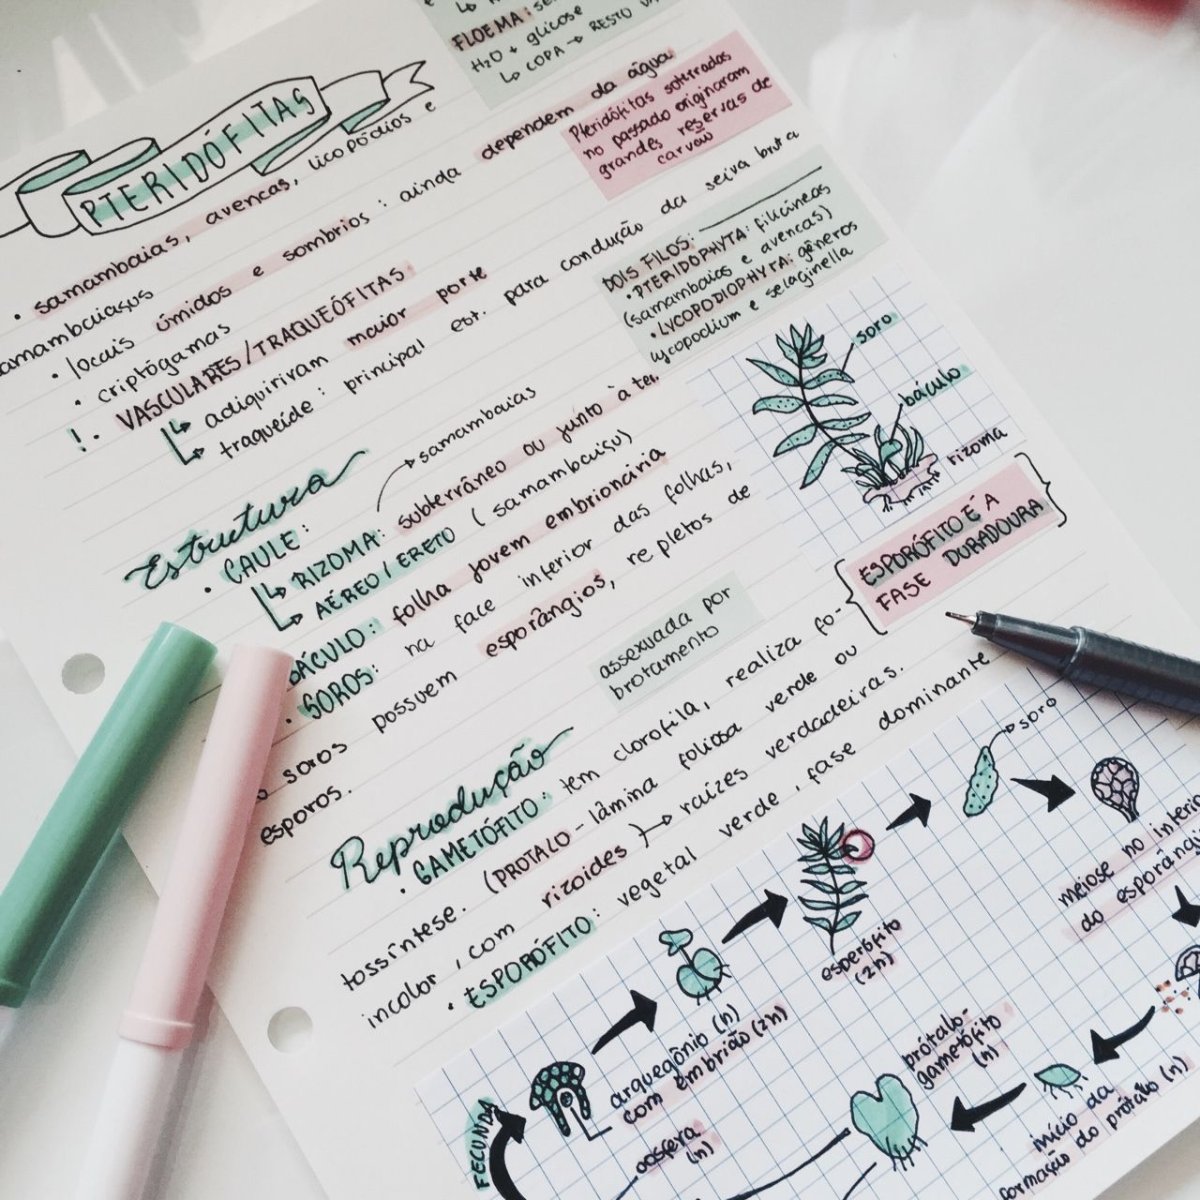 FLOEMA:
H₂O + glicose
↳ COPA → RESTO
PTERIDÓFITAS
• samambaias, avencas, licopódios e
samambaiaçus
• locais úmidos e sombrios : ainda dependem da água
• criptógamas
!. VASCULARES/TRAQUEÓFITAS.
↳ adiquiriram maior porte
↳ traqueíde : principal est. para condução da seiva bruta
Pteridófitas soterradas
no passado originaram
grandes reservas de
carvão
DOIS FILOS:
• PTERIDOPHYTA: filicíneas
(samambaias e avencas)
• LYCOPODIOPHYTA: gêneros
lycopodium e selaginella
soro
báculo
rizoma
Estrutura
• CAULE:
→ samambaias
↳ RIZOMA: subterrâneo ou junto à ter.
↳ AÉREO/ERETO (samambaiaçu)
BÁCULO: folha jovem embrionária
• SOROS: na face inferior das folhas,
soros possuem esporângios, repletos de
esporos.
ESPORÓFITO É A
FASE DURADOURA
assexuada por
brotamento
Reprodução
• GAMETÓFITO: tem clorofila, realiza fo-
tossíntese. (PROTALO - lâmina foliosa verde ou
incolor, com rizoides) → raízes verdadeiras.
• ESPORÓFITO: vegetal verde, fase dominante
soro
meiose no interi
do esporângi
esporófito
(2n)
arquegônio (n)
com embrião (2n)
oosfera
(n)
FECUNDA
prótalo-
gametófito
(n)
início da
formação do prótalo (n)